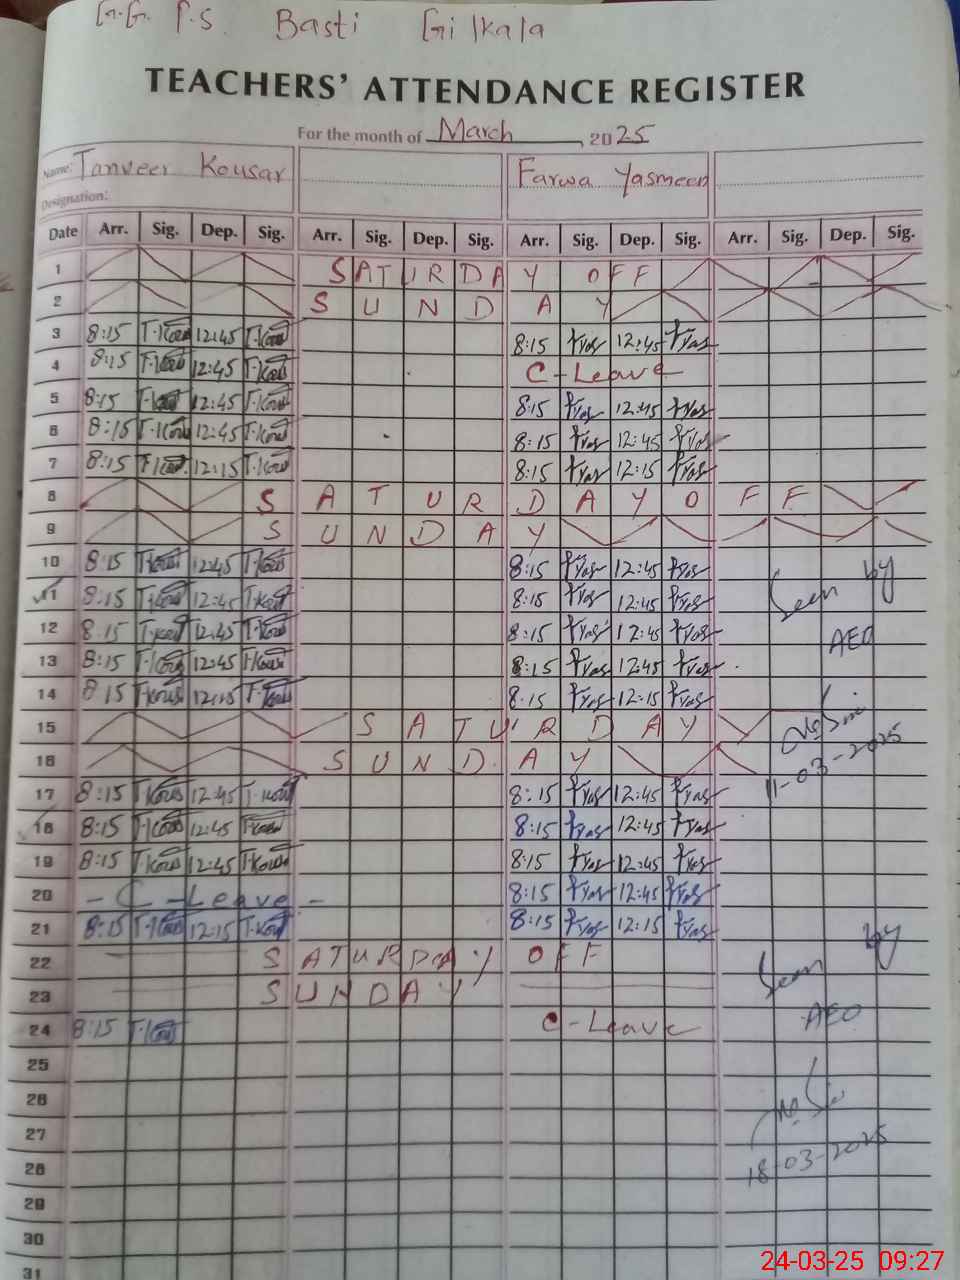 G.G. P.S. Basti Gilkala
TEACHERS' ATTENDANCE REGISTER
For the month of March, 2025
Name: Tanveer Kousar Farwa Yasmeen
Designation:
Date Arr. Sig. Dep. Sig. Arr. Sig. Dep. Sig. Arr. Sig. Dep. Sig. Arr. Sig. Dep. Sig.
1 SATURDAY OFF
2 SUNDAY
3 8:15 T.Kous 12:45 T.Kous 8:15 fYas 12:45 fYas
4 8:15 T.Kous 12:45 T.Kous C-Leave
5 8:15 T.Kous 12:45 T.Kous 8:15 fYas 12:45 fYas
6 8:15 T.Kous 12:45 T.Kous 8:15 fYas 12:45 fYas
7 8:15 T.Kous 12:15 T.Kous 8:15 fYas 12:15 fYas
8 SATURDAY OFF
9 SUNDAY
10 8:15 T.Kous 12:45 T.Kous 8:15 fYas 12:45 fYas Seen by
11 8:15 T.Kous 12:45 T.Kous 8:15 fYas 12:45 fYas
12 8.15 T.Kous 12.45 T.Kous 8:15 fYas 12:45 fYas AEO
13 8:15 T.Kous 12:45 T.Kous 8:15 fYas 12:45 fYas
14 8 15 T.Kous 12:15 T.Kous 8:15 fYas 12:15 fYas
15 SATURDAY
16 SUNDAY 11-03-2025
17 8:15 T.Kous 12:45 T.Kous 8:15 fYas 12:45 fYas
18 8:15 T.Kous 12:45 T.Kous 8:15 fYas 12:45 fYas
19 8:15 T.Kous 12:45 T.Kous 8:15 fYas 12:45 fYas
20 - C-Leave - 8:15 fYas 12:45 fYas
21 8:15 T.Kous 12:15 T.Kous 8:15 fYas 12:15 fYas
22 SATURDAY OFF Seen by
23 SUNDAY
24 8:15 T.Kous C-Leave AEO
25
26
27
28 18-03-2025
29
30
31
24-03-25 09:27